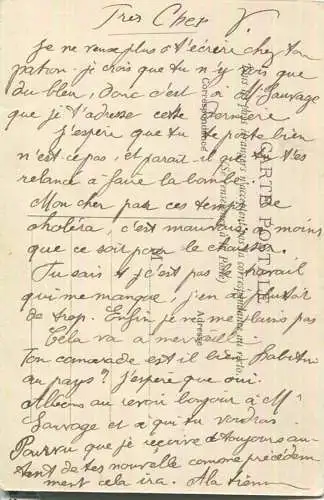 Très Cher V
Je ne veux plus t'écrire chez ton
patron je crois que tu n'y vois que
du bleu, donc c'est à l'Sauvage
que je t'adresse cette dernière
j'espère que tu te porte bien
n'est-ce pas, et parait il que tu t'es
relancé à faire la bombe.
Mon cher par ces temps de
choléra, c'est mauvais à moins
que ce soit pour la
Tu sais c'est pas le travail
qui me manque, j'en ai plutôt
de trop. Enfin je ne me plains pas
Cela va à merveille.
Ton camarade est il bien habitué
au pays? J'espère que oui.
Allons au revoir bonjour à Mr
Sauvage et à qui tu voudras.
Pourvu que je reçoive toujours au-
tant de tes nouvelle comme précédem-
ment cela ira. A la tienne
CARTE POSTALE
Tous les pays étrangers n'acceptent pas la correspondance au recto.
(Se renseigner à la Poste)
Correspondance
Adresse
M